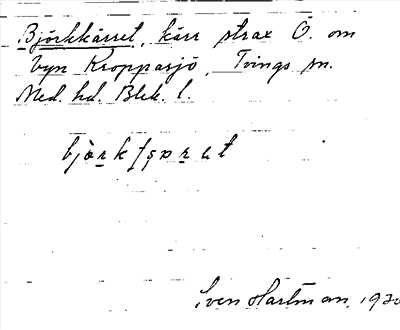 Björkkärret, kärr strax Ö. om
byn Kroppasjö, Tvings sn.
Med. hd. Blek. l.
Sven Hartman, 1930